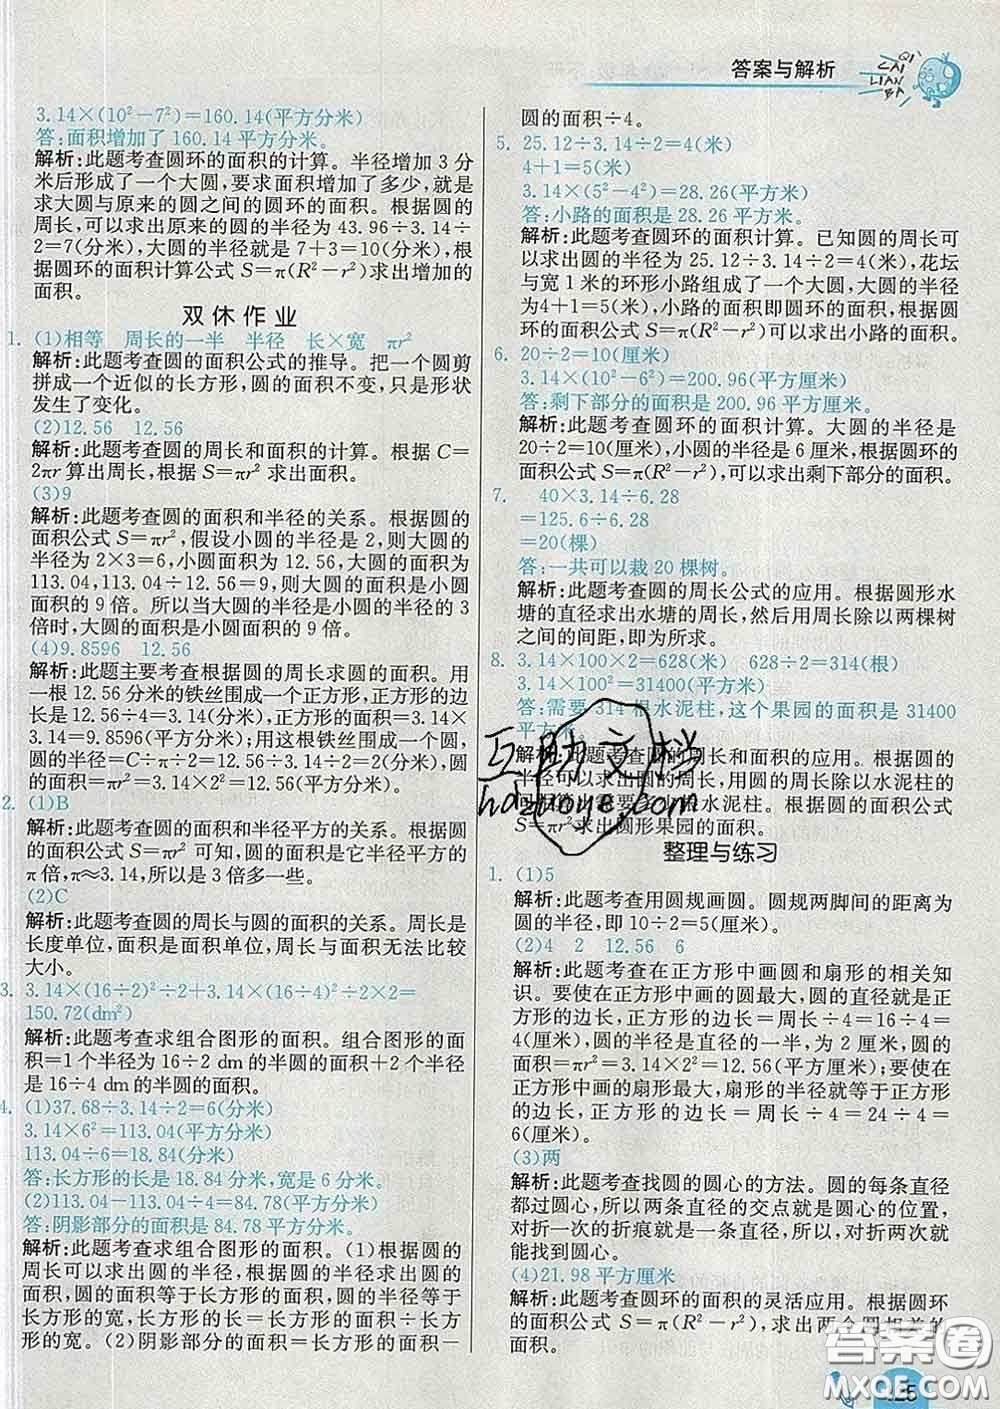 答案与解析
QI
CAI
LIAN
BA
3.14×(10²−7²)=160.14(平方分米)
答:面积增加了 160.14 平方分米。
解析:此题考查圆环的面积的计算。半径增加 3 分
米后形成了一个大圆,要求面积增加了多少,就是
求大圆与原来的圆之间的圆环的面积。根据圆的
周长,可以求出原来的圆的半径为 43.96÷3.14÷
2=7(分米),大圆的半径就是 7+3=10(分米),根
据圆环的面积计算公式 S=π(R²−r²)求出增加的
面积。
双休作业
1. (1)相等 周长的一半 半径 长×宽 πr²
解析:此题考查圆的面积公式的推导。把一个圆剪
拼成一个近似的长方形,圆的面积不变,只是形状
发生了变化。
(2)12.56 12.56
解析:此题考查圆的周长和面积的计算。根据 C=
2πr 算出周长,根据 S=πr² 求出面积。
(3)9
解析:此题考查圆的面积和半径的关系。根据圆的
面积公式 S=πr²,假设小圆的半径是 2,则大圆的半
径为 2×3=6,小圆面积为 12.56,大圆的面积为
113.04,113.04÷12.56=9,则大圆的面积是小圆
面积的 9 倍。所以当大圆的半径是小圆半径的 3
倍时,大圆的面积是小圆面积的 9 倍。
(4)9.8596 12.56
解析:此题主要考查根据圆的周长求圆的面积。用
一根 12.56 分米的铁丝围成一个正方形,正方形的边
长是 12.56÷4=3.14(分米),正方形的面积=3.14×
3.14=9.8596(平方分米);用这根铁丝围成一个圆,
圆的半径=C÷π÷2=12.56÷3.14÷2=2(分米),圆
的面积=πr²=3.14×2²=12.56(平方分米)。
2. (1)B
解析:此题考查圆的面积和半径平方的关系。根据圆
的面积公式 S=πr² 可知,圆的面积是它半径平方的
π倍,π≈3.14,所以是 3 倍多一些。
(2)C
解析:此题考查圆的周长与圆的面积的关系。周长是
长度单位,面积是面积单位,周长与面积无法比较
大小。
3. 3.14×(16÷2)²÷2+3.14×(16÷2÷2)²=
150.72(dm²)
解析:此题考查求组合图形的面积。组合图形的面
积=1 个半径为 16÷2 dm 的半圆的面积+2 个半径
是 16÷4 dm 的半圆的面积。
4. (1)37.68÷3.14÷2=6(分米)
3.14×6²=113.04(平方分米)
113.04÷6=18.84(分米)
答:长方形的长是 18.84 分米,宽是 6 分米。
(2)113.04−113.04÷4=84.78(平方分米)
答:阴影部分的面积是 84.78 平方分米。
解析:此题考查求组合图形的面积。(1)根据圆的
周长可以求出圆的半径,根据圆的半径求出圆的
面积,圆的面积等于长方形的面积,圆的半径等于
长方形的宽,长方形的长=长方形的面积÷长方
形的宽。(2)阴影部分的面积=长方形的面积−
圆的面积÷4。
5. 25.12÷3.14÷2=4(米)
4+1=5(米)
3.14×(5²−4²)=28.26(平方米)
答:小路的面积是 28.26 平方米。
解析:此题考查圆环的面积计算。已知圆的周长可
以求出圆的半径为 25.12÷3.14÷2=4(米),花坛
与宽 1 米的环形小路组成了一个大圆,大圆的半径
为4+1=5(米),小路的面积即圆环的面积,根据圆
环的面积公式 S=π(R²−r²)可以求出小路的面积。
6. 20÷2=10(厘米)
3.14×(10²−6²)=200.96(平方厘米)
答:剩下部分的面积是 200.96 平方厘米。
解析:此题考查圆环的面积计算。大圆的半径是
20÷2=10(厘米),小圆的半径是 6 厘米,根据圆环的
面积公式 S=π(R²−r²),可以求出剩下部分的面积。
7. 40×3.14÷6.28
=125.6÷6.28
=20(棵)
答:一共可以栽 20 棵树。
解析:此题考查圆的周长公式的应用。根据圆形水
塘的直径求出水塘的周长,然后用周长除以两棵树
之间的间距,即为所求。
8. 3.14×100×2=628(米) 628÷2=314(根)
3.14×100²=31400(平方米)
答:需要 314 根水泥柱,这个果园的面积是 31400
平方米。
解析:此题考查圆的周长和面积的应用。根据圆的
半径可以求出圆的周长,用圆的周长除以水泥柱的
水泥柱。根据圆的面积公式
S=πr²求出圆形果园的面积。
互助文档
hdzuoye.com
整理与练习
1. (1)5
解析:此题考查用圆规画圆。圆规两脚间的距离为
圆的半径,即 10÷2=5(厘米)。
(2)4 2 12.56 6
解析:此题考查在正方形中画圆和扇形的相关知
识。要使在正方形中画的圆最大,圆的直径就是正
方形的边长,正方形的边长=周长÷4=16÷4=
4(厘米),圆的半径是直径的一半,为 2 厘米,圆的
面积=πr²=3.14×2²=12.56(平方厘米)。要使在
正方形中画的扇形最大,扇形的半径就等于正方形
的边长,正方形的边长=周长÷4=24÷4=
6(厘米)。
(3)两
解析:此题考查找圆的圆心的方法。圆的每条直径
都过圆心,所以两条直径的交点就是圆心的位置,
对折一次的折痕就是一条直径,所以对折两次就
能找到圆心。
(4)21.98 平方厘米
解析:此题考查圆环的面积的灵活应用。根据圆环
的面积公式 S=π(R²−r²),求出两个圆相差的
面积。
答案圈
MXQE.COM
125